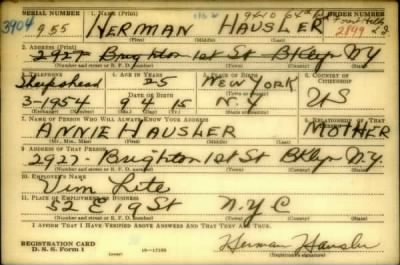 SERIAL NUMBER 1. NAME (Print) 9410 64th ORDER NUMBER
3904 955 HERMAN HAUSLER 2849
(First) (Middle) (Last)
2. ADDRESS (Print)
2927 Brighton 1st St Bklyn NY
(Number and street or R. F. D. number) (Town) (County) (State)
3. TELEPHONE 4. AGE IN YEARS 5. PLACE OF BIRTH 6. COUNTRY OF CITIZENSHIP
Sheepshead 25 NEW YORK
DATE OF BIRTH
3-1954 9 4 15 N.Y US
(Mo.) (Day) (Yr.)
7. NAME OF PERSON WHO WILL ALWAYS KNOW YOUR ADDRESS 8. RELATIONSHIP OF THAT PERSON
ANNIE HAUSLER MOTHER
(Mr., Mrs., Miss) (First) (Middle) (Last)
9. ADDRESS OF THAT PERSON
2927- Brighton 1st St Bklyn N.Y.
(Number and street or R. F. D. number) (Town) (County) (State)
10. EMPLOYER'S NAME
Vim Lite
11. PLACE OF EMPLOYMENT OR BUSINESS
52 E 19 St N.Y C
(Number and street or R. F. D. number) (Town) (County) (State)
I AFFIRM THAT I HAVE VERIFIED ABOVE ANSWERS AND THAT THEY ARE TRUE.
REGISTRATION CARD
D. S. S. Form 1 Herman Hausler
(Registrant's signature)